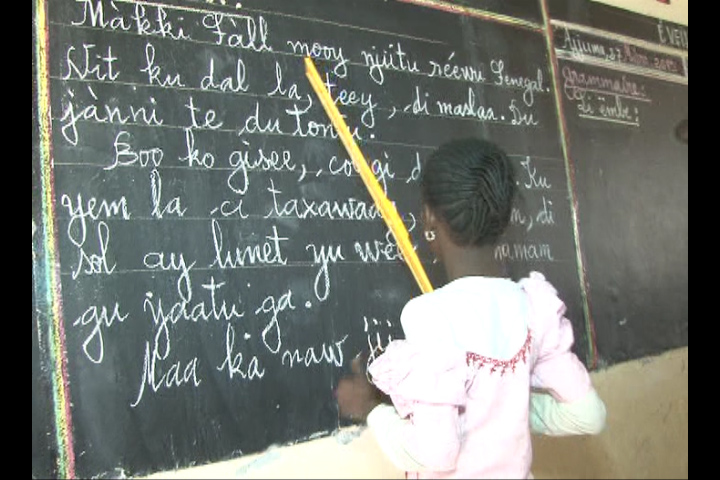 Màkki Fàll mooy njiitu réewu Senegal.
Nit ku dal la, teey, di maslaa. Du
jànni te du tontu.
Boo ko gisee, Ku
yem la ci taxawaay, di
sol ay lunet yu weex mamam
gu yaatu ga.
Maa ka naw
ÉVEIL
Ajjuma
grammaire:
Li ëmb: